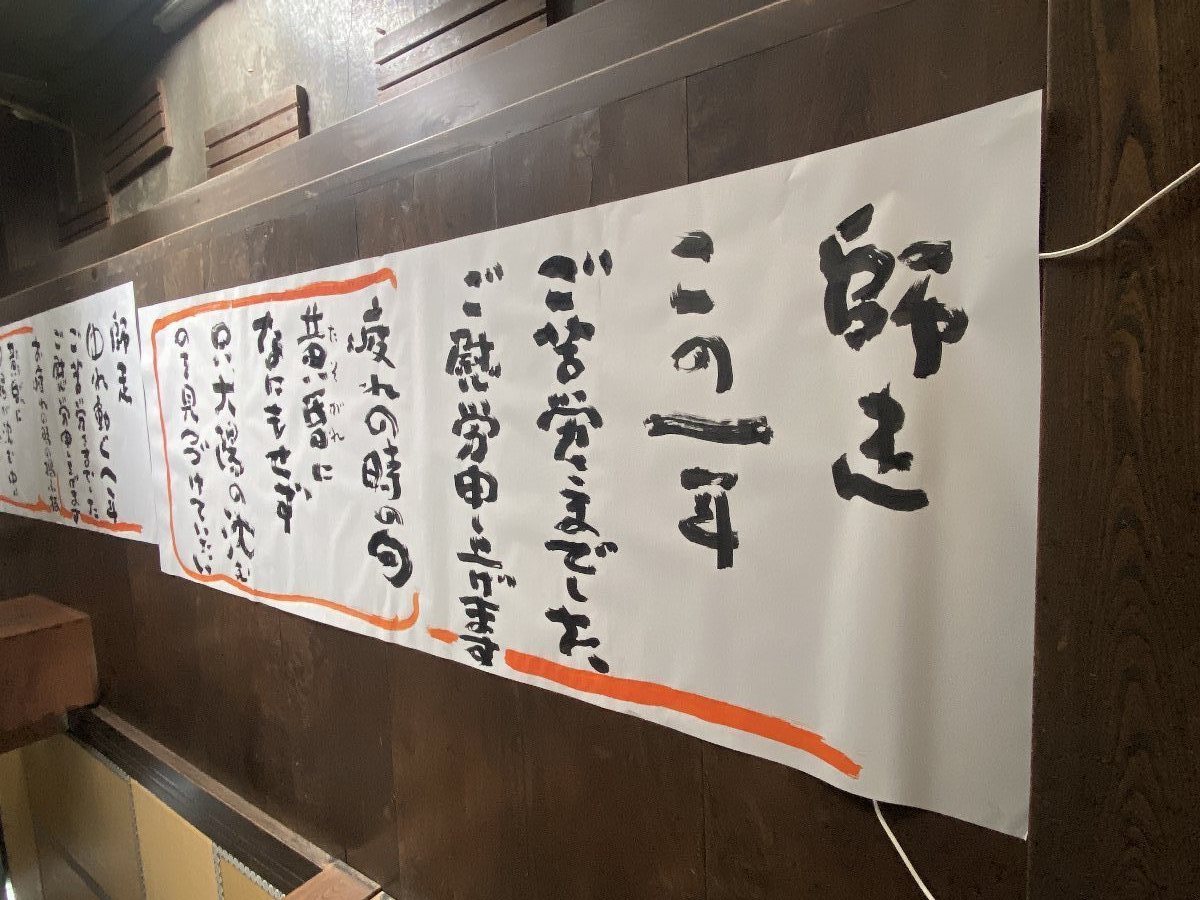 師走
この一年
ご苦労さまでした、
ご慰労申し上げます
疲れの時の句
黄昏に
たそがれ
なにもせず
只、太陽の沈む
のを見つづけていたい
師走
ゆれ動く一年
ご苦労さまでした
ご慰労申し上げます
お疲れの時の
黄昏に